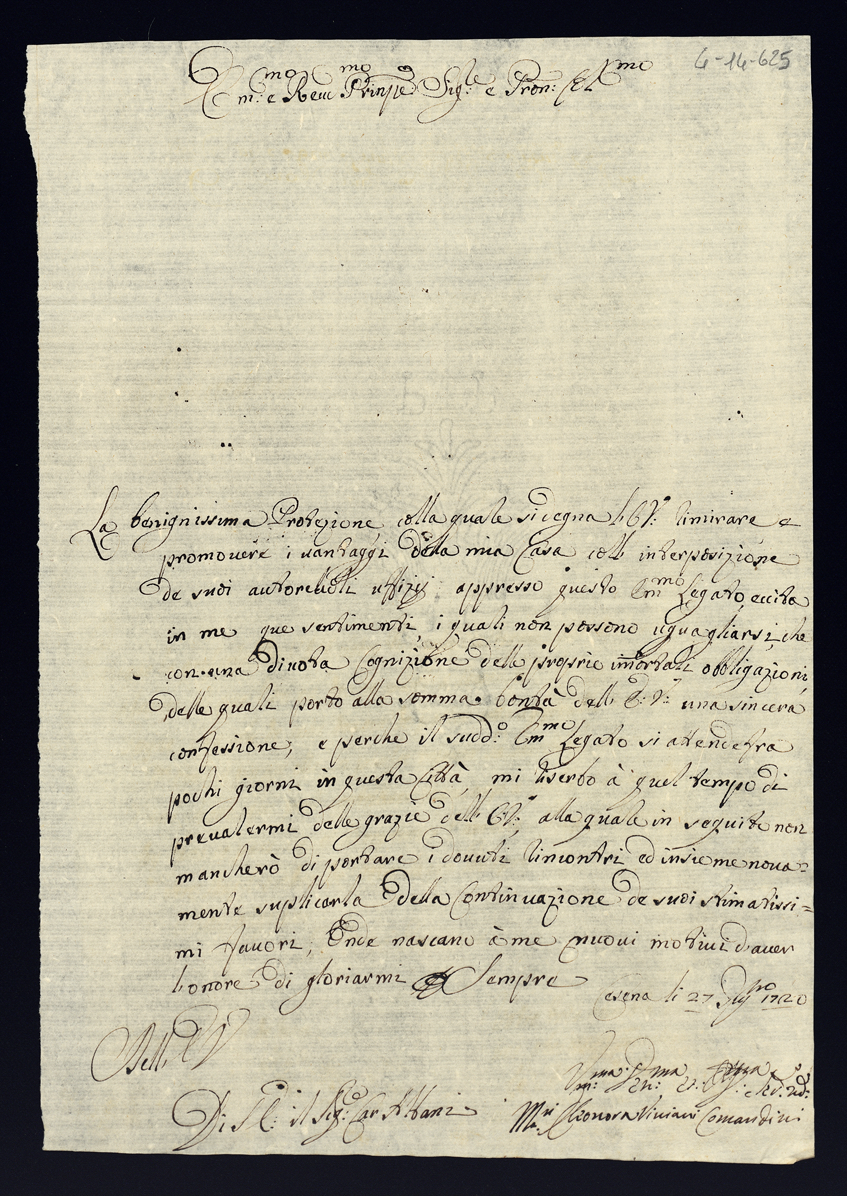 4-14-625
Em:mo e Reumo Prinpe Sig:re e Pron: Col:mo
La benignissima Protezione colla quale si degna l'E.V: rimirare e
promouere i uantaggi della mia Casa coll interposizione
de suoi autoreuoli uffizij appresso questo Emmo Legato, eccita
in me que sentimenti, i quali non possono uguagliarsi, che
con una diuota Cognizione delle proprie immortali obbligazioni,
delle quali porto alla somma bontà dell E:V: una sincera
confessione, e perche il sudd:o Emmo Legato si attende fra
pochi giorni in questa Città, mi riserbo à quel tempo di
preualermi delle grazie dell E.V:, alla quale in seguito non
mancherò di portare i douuti rincontri ed insieme noua=
mente suplicarla della Continuazione de suoi stimatissi=
mi fauori, Onde nascano à me nuoui motiui d'auer
l'onore di gloriarmi Sempre
Cesena li 27 1720
Dell E V
Di S.E: il Sig:o Car Albani
Um:ma Deu:
Eleonora Viniani Comandini